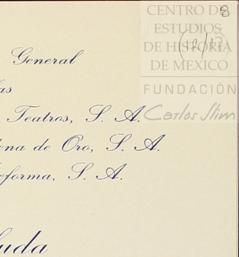 8
CENTRO DE
ESTUDIOS
DE HISTORIA
DE MEXICO
(12/12)
FUNDACIÓN
Carlos Slim
General
las
Teatros, S. A.
ena de Oro, S. A.
eforma, S. A.
uda